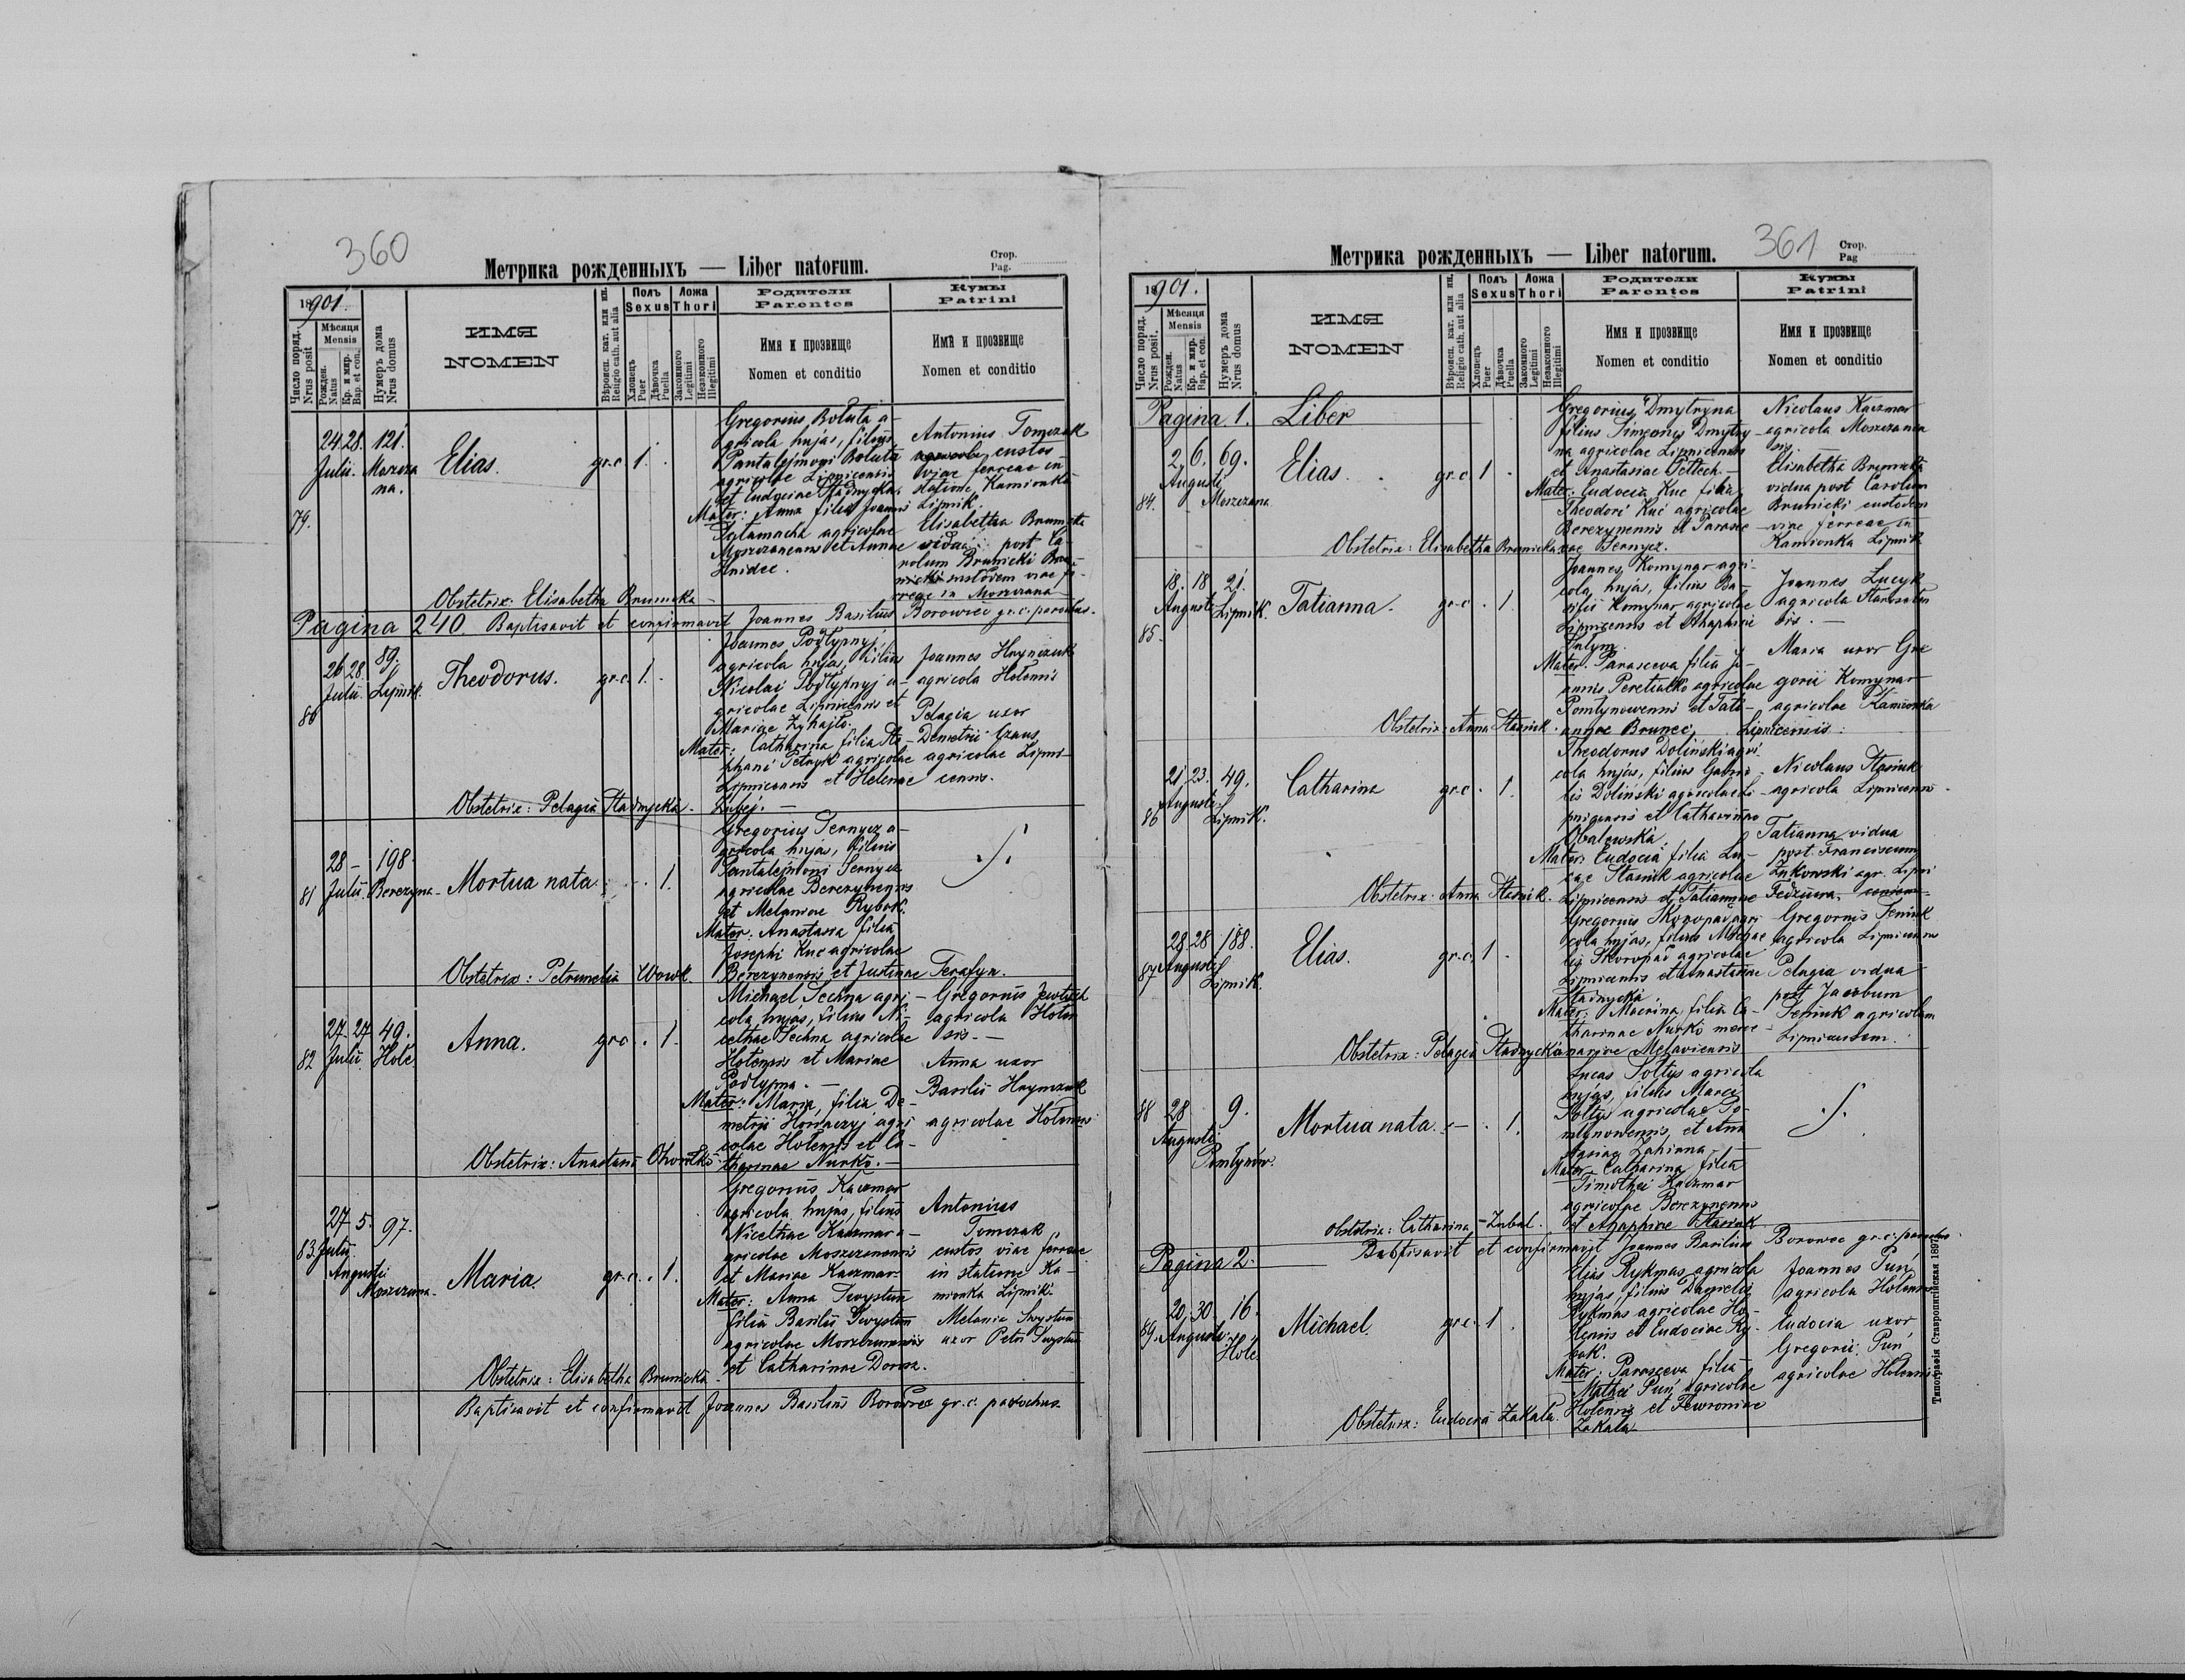 360
Метрика рожденныхъ — Liber natorum.
Стор.
Pag.
1901.
Число поряд.
Nrus posit
Мѣсяця
Mensis
Рожден.
Natus
Кр. и мир.
Bap. et con.
Нумеръ дома
Nrus domus
ИМЯ
NOMEN
Вѣроисп. кат. или ин.
Religio cath. aut alia
Полъ
Sexus
Хлопець
Puer
Дѣвочка
Puella
Ложа
Thori
Законного
Legitimi
Незаконного
Illegitimi
Родители
Parentes
Имя и прозвище
Nomen et conditio
Кумы
Patrini
Имя и прозвище
Nomen et conditio
79.
24. 28. 121.
Julii. Moszcza
na.
Elias.
gr.c. 1.
Gregorius Boluta a-
gricola hujas, filius
Pantalejmoni Boluta
agricolae Lipnicensis
et Eudociae Stadnycka.
Mater: Anna filia Joannis
agricolae
Moszczanensis et Annae
Hnidec.
Antonius Tomczak
custos
viae ferreae in
statione Kamionka
Lipnik.
Elisabetha Brunicka
vidua post Ca-
rolum Brunicki
custodem viae fe-
rreae in Moszczana
Obstetrix: Elisabetha Brunicka
Pagina 240. Baptisavit et confirmavit Joannes Basilius Borowiec gr.c. parochus.
80
26 28 89.
Julii. Lipnik.
Theodorus.
gr.c. 1.
Joannes Podłypnyj,
agricola hujas, filius
Nicolai Podłypnyj a-
gricolae Lipnicensis et
Mariae Zyhajło.
Mater: Catharina filia Ste-
phani Petryk agricolae
Lipnicensis et Helenae
Zubej. —
Joannes Hrynczuk
agricola Hołensis
Pelagia uxor
Demetrii
agricolae Lipni-
censis.
Obstetrix: Pelagia Stadnycka.
81
28 — 198
Julii. Berezyna.
Mortua nata.
. 1.
Gregorius Ternycz a-
gricola hujas, filius
Pantalejmoni Ternycz
agricolae Berezynensis
et Melaniae Rybak.
Mater: Anastasia filia
Josephi Kuc agricolae
Berezynensis et Justinae Terafyn.
./.
Obstetrix: Petrunela Wowk.
82
27. 27 49.
Julii. Hole
Anna.
gr.c . 1.
Michael Sechna agri-
cola hujas, filius Ni-
cethae Sechna agricolae
Hołensis et Mariae
Podłypna. —
Mater: Maria, filia De-
metrii Horaczyj agri
colae Hołensis et Ca-
tharinae Nurko. —
Gregorius
agricola Hołen
sis. —
Anna uxor
Basilii Hrynczuk
agricolae Hołensis
Obstetrix: Anastasia
83.
27 5. 97.
Julii.
Augusti
Moszczana.
Maria.
gr.c. . 1.
Gregorius Kaczmar
agricola hujas, filius
Nicethae Kaczmar a-
gricolae Moszczanensis
et Mariae Kaczmar
Mater: Anna Swystun
filia Basilii Swystun
agricolae Moszczanensis
et Catharinae Dorosz.
Antonius
Tomczak
custos viae ferreae
in statione Ka-
mionka Lipnik.
Melania Swystun
uxor Petri Swystun
Obstetrix: Elisabetha Brunicka
Baptisavit et confirmavit Joannes Basilius Borowiec gr.c. parochus.
361
Метрика рожденныхъ — Liber natorum.
Стор.
Pag
1901.
Число поряд.
Nrus posit.
Мѣсяця
Mensis
Рожден.
Natus
Кр. и мир.
Bap. et con.
Нумеръ дома
Nrus domus
ИМЯ
NOMEN
Вѣроисп. кат. или ин.
Religio cath. aut alia
Полъ
Sexus
Хлопець
Puer
Дѣвочка
Puella
Ложа
Thori
Законного
Legitimi
Незаконного
Illegitimi
Родители
Parentes
Имя и прозвище
Nomen et conditio
Кумы
Patrini
Имя и прозвище
Nomen et conditio
Pagina 1. Liber
84.
2. 6. 69.
Augusti
Moszczana
Elias.
gr.c. 1
Gregorius Dmytryna
filius Simeonis Dmytry-
na agricolae Lipnicensis
et Anastasiae
Mater: Eudocia Kuc filia
Theodori Kuc agricolae
Berezynensis et Parasce-
vae Ternycz.
Nicolaus Kaczmar
agricola Moszczanen
sis —
Elisabetha Brunicka
vidua post Carolum
Brunicki custodem
viae ferreae in
Kamionka Lipnik
Obstetrix: Elisabetha Brunicka
85.
18. 18 21.
Augusti Lipnik.
Tatianna.
gr.c . 1.
Joannes Komynar agri-
cola hujas, filius Ba-
silii Komynar agricolae
Lipnicensis et Ahaphiae
Mater: Parasceva filia Jo-
annis Peretiatko agricolae
Pomłynowensis et Tati-
annae Brunec,
Joannes Lucyk
agricola
sis. —
Maria uxor Gre
gorii Komynar
agricolae Kamionka
Lipnicensis.
Obstetrix: Anna Stasiuk.
86
21 23. 49.
Augusti
Lipnik.
Catharina
gr.c . 1.
Theodorus Doliński agri
cola hujas, filius Gabri-
lis Doliński agricolae Li-
pnicensis et Catharinae
Obalewska.
Mater: Eudocia filia Lu-
cae Stasiuk agricolae
Lipnicensis et Tatiannae Fedziura.
Nicolaus Stasiuk
agricola Lipnicensis
Tatianna vidua
post Franciscum
Żukowski agr. Lipni
Obstetrix: Anna Stasiuk.
87
28 28 188.
Augusti
Lipnik.
Elias.
gr.c. 1
Gregorius Skoropad agri
cola hujas, filius Michae
lis Skoropad agricolae
Lipnicensis et Anastasiae
Stadnycka.
Mater: Macrina, filia Ca-
tharinae Nurko merce-
nariae
Gregorius Seniuk
agricola Lipnicensis
Pelagia vidua
post Jacobum
Seniuk agricolam
Lipnicensem.
Obstetrix: Pelagia Stadnycka
88
28 9.
Augusti
Pomłynów.
Mortua nata. —
. 1.
Lucas Sołtys agricola
hujas, filius Marci
Sołtys agricolae Po-
młynowensis, et Ana
stasiae
Mater: Catharina filia
Timothei Kaczmar
agricolae Berezynensis
et Agaphiae Stasiuk
./.
Obstetrix: Catharina Zubal.
Pagina 2. Baptisavit et confirmavit Joannes Basilius Borowiec gr.c. parochus.
89.
20. 30. 16.
Augusti.
Hole
Michael.
gr.c. 1.
Elias Rykmas agricola
hujas, filius Danielis
Rykmas agricolae Ho-
lensis et Eudociae Ry-
bak.
Mater: Parasceva filia
Mathei Puń agricolae
Holensis et Fewroniae
Zakala
Joannes Puń,
agricola Holensis
Eudocia uxor
Gregorii Puń
agricolae Holensis
Obstetrix: Eudocia Zakala.
Типографія Ставропигійская 1897.